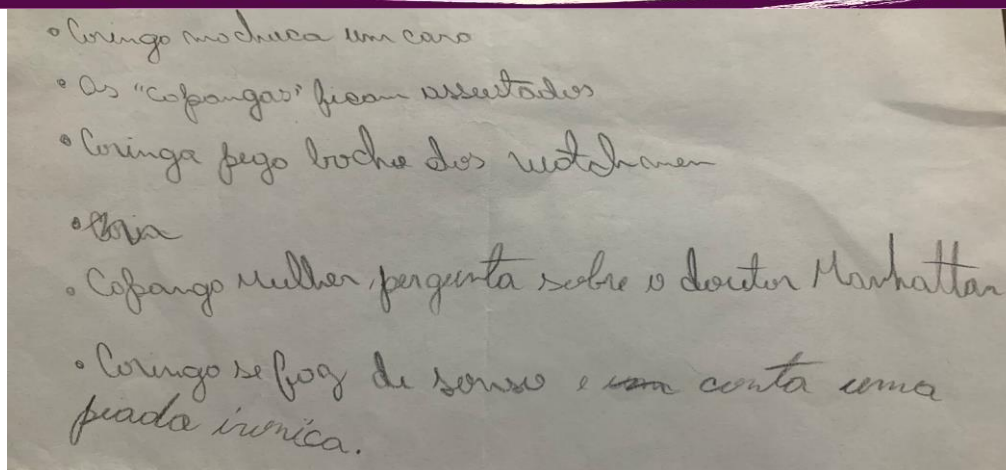 • Coringa machuca um cara
• Os "capangas" ficam assustados
• Coringa pega broche dos watchmen
•
• Capanga mulher, pergunta sobre o doutor Manhattan
• Coringa se faz de sonso e conta uma
piada irônica.